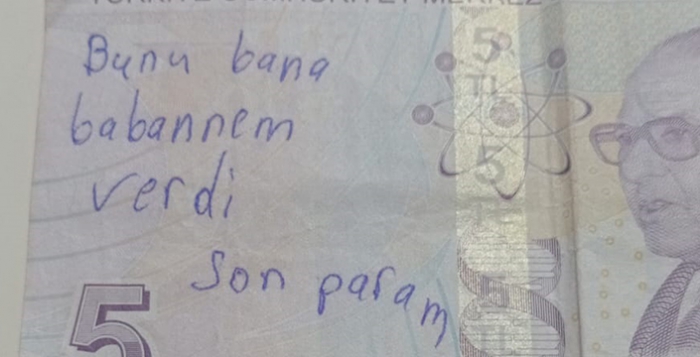 Bunu bana
babannem
verdi
son param
5
TL
5
TL
5
5